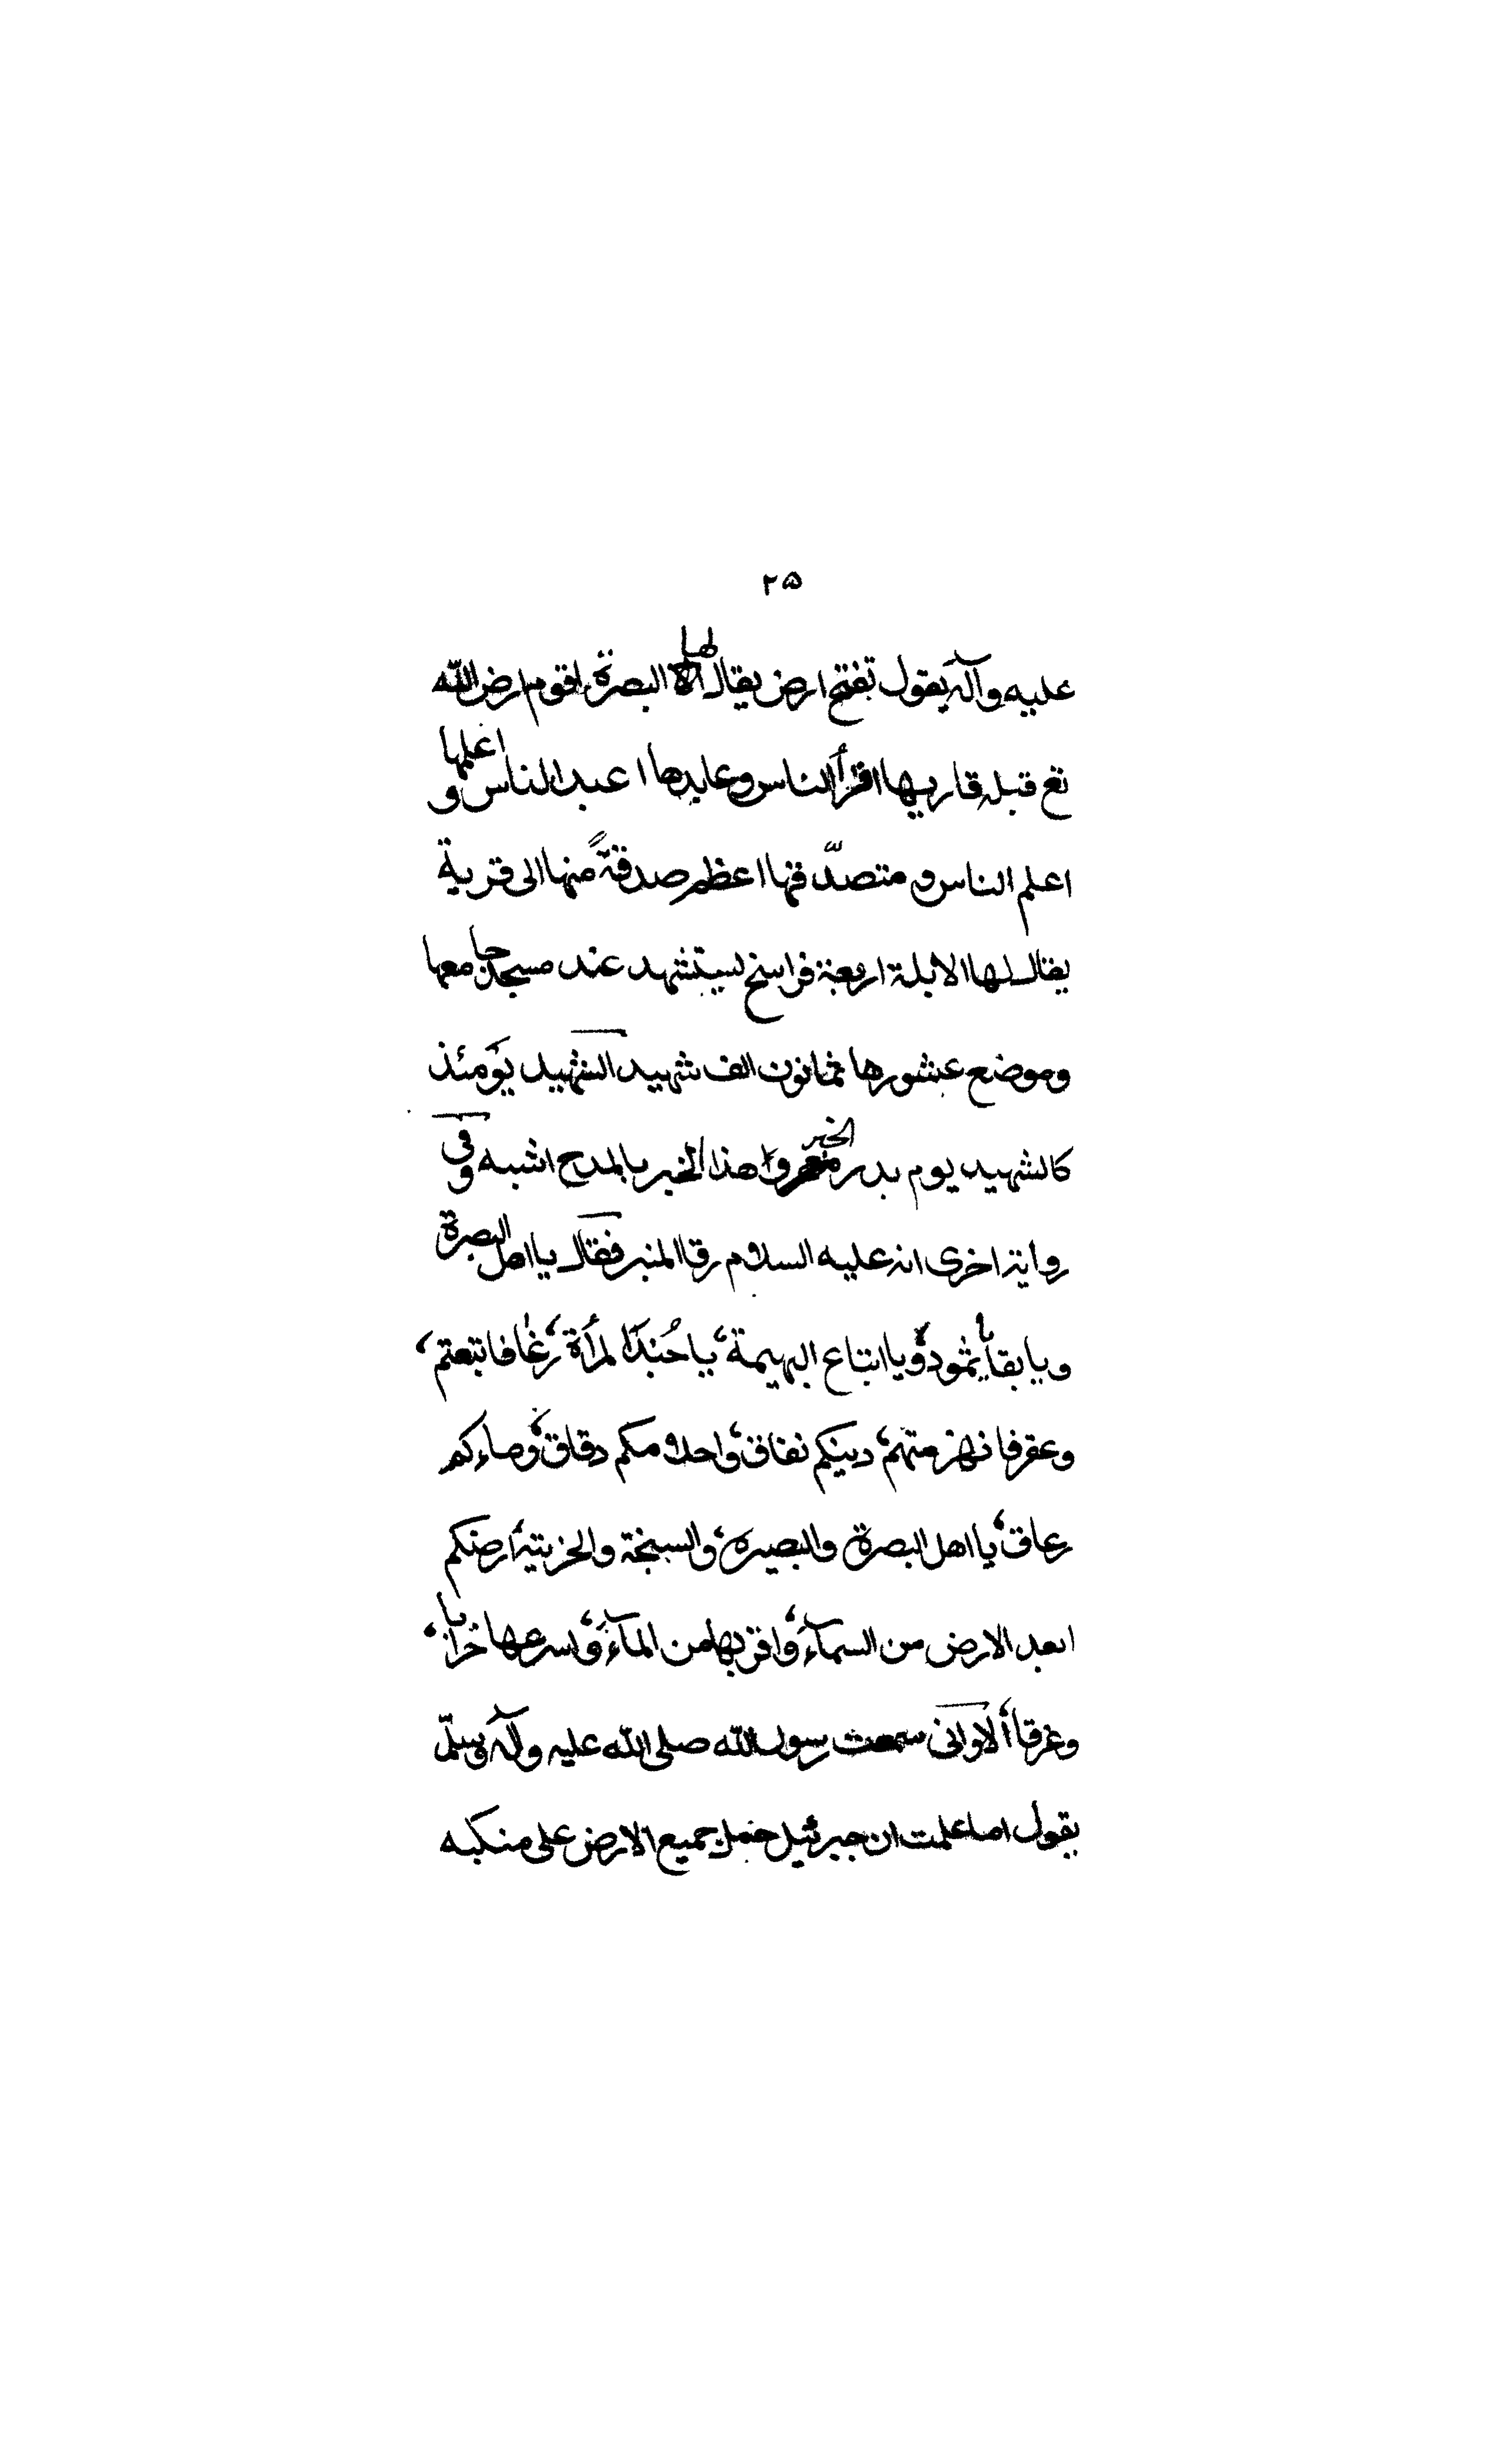 ٢٥
عليه وآله يقول تفتح ارض يقال لها البصرة اقوم ارض الله
تع قبلة قاريها اقرأ الناس وعابدها اعبد الناس و اعلمها
اعلم الناس و متصدّقها اعظم صدقةً منها الى قرية
يقال لها الابلة اربعة فراسخ يستشهد عند مسجد جامعها
وموضع عشورها ثمانون الف شهيد الشهيد يومئذ
كالشهيد يوم بدر الخبر وهذا الخبر بالمدح اشبه وفى
رواية اخرى انه عليه السلام رقا المنبر فقال يا اهل البصرة
ويا بقايا ثمود، ويا اتباع البهيمة، يا جُندَ المرأة، رغا فاتبعتم،
وعقر فانهزمتم، دينكم نفاق، واحلامكم دقاق، وماءكم
زعاق، يا اهل البصرة والبصيرة، والسبخة والخريبة، ارضكم
ابعد الارض من السمآء، واقربها من المآء، واسرعها خرابا،
وغرقا، ألا وانى سمعت رسول الله صلى الله عليه وآله وسلّم
يقول اما علمت ان جبرئيل حمل جميع الارض على منكبه